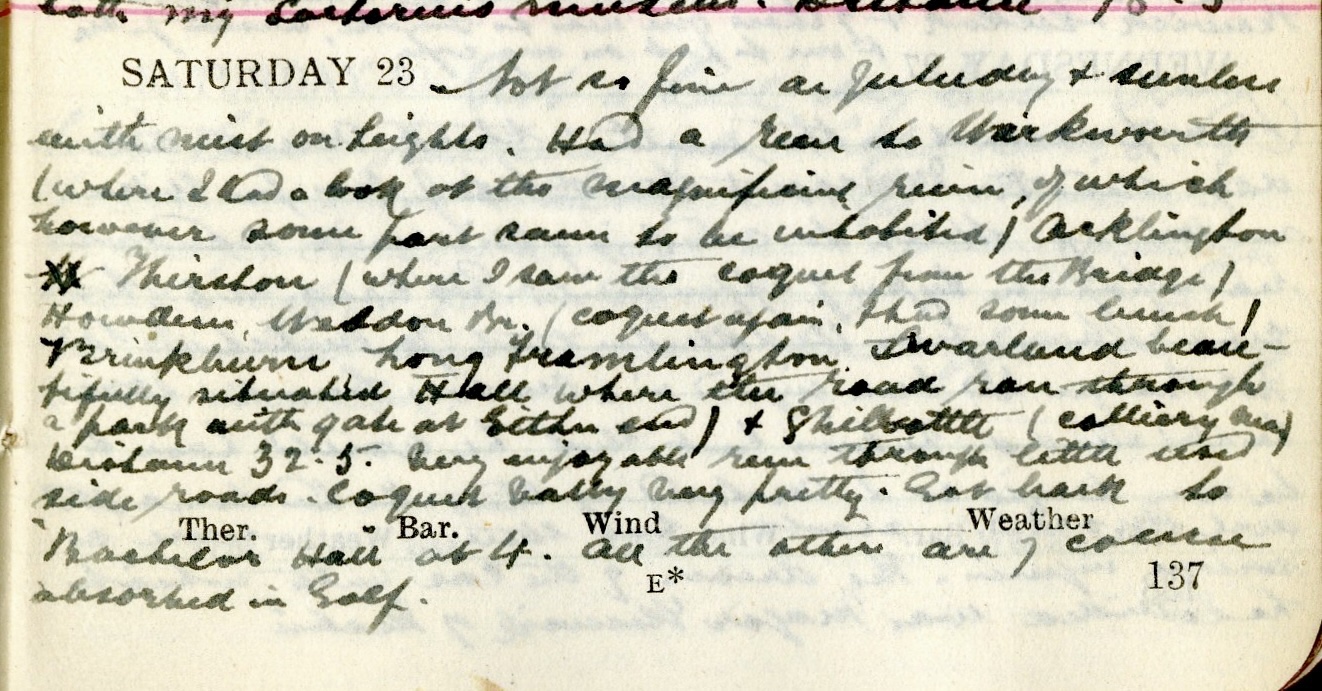 both my
SATURDAY 23 Not so fine as yesterday & sunless
with mist on heights. Had a run to Warkworth
(where I had a look at the magnificent ruin, of which
however some part seem to be inhabited) Acklington
Thirston (where I saw the Coquet from the Bridge)
Weldon Br. (Coquet again, & had some lunch)
Brinkburn Long Framlington, Swarland beau-
tifully situated Hall where the road ran through
a park with gate at Either end) & Shilbottle (colliery
Distance 32.5. Very enjoyable run through little used
side roads. Coquet Vally very pretty. Got back to
Ther. Bar. Wind Weather
Bachelor Hall at 4. All the others are of course
E* 137
absorbed in Golf.